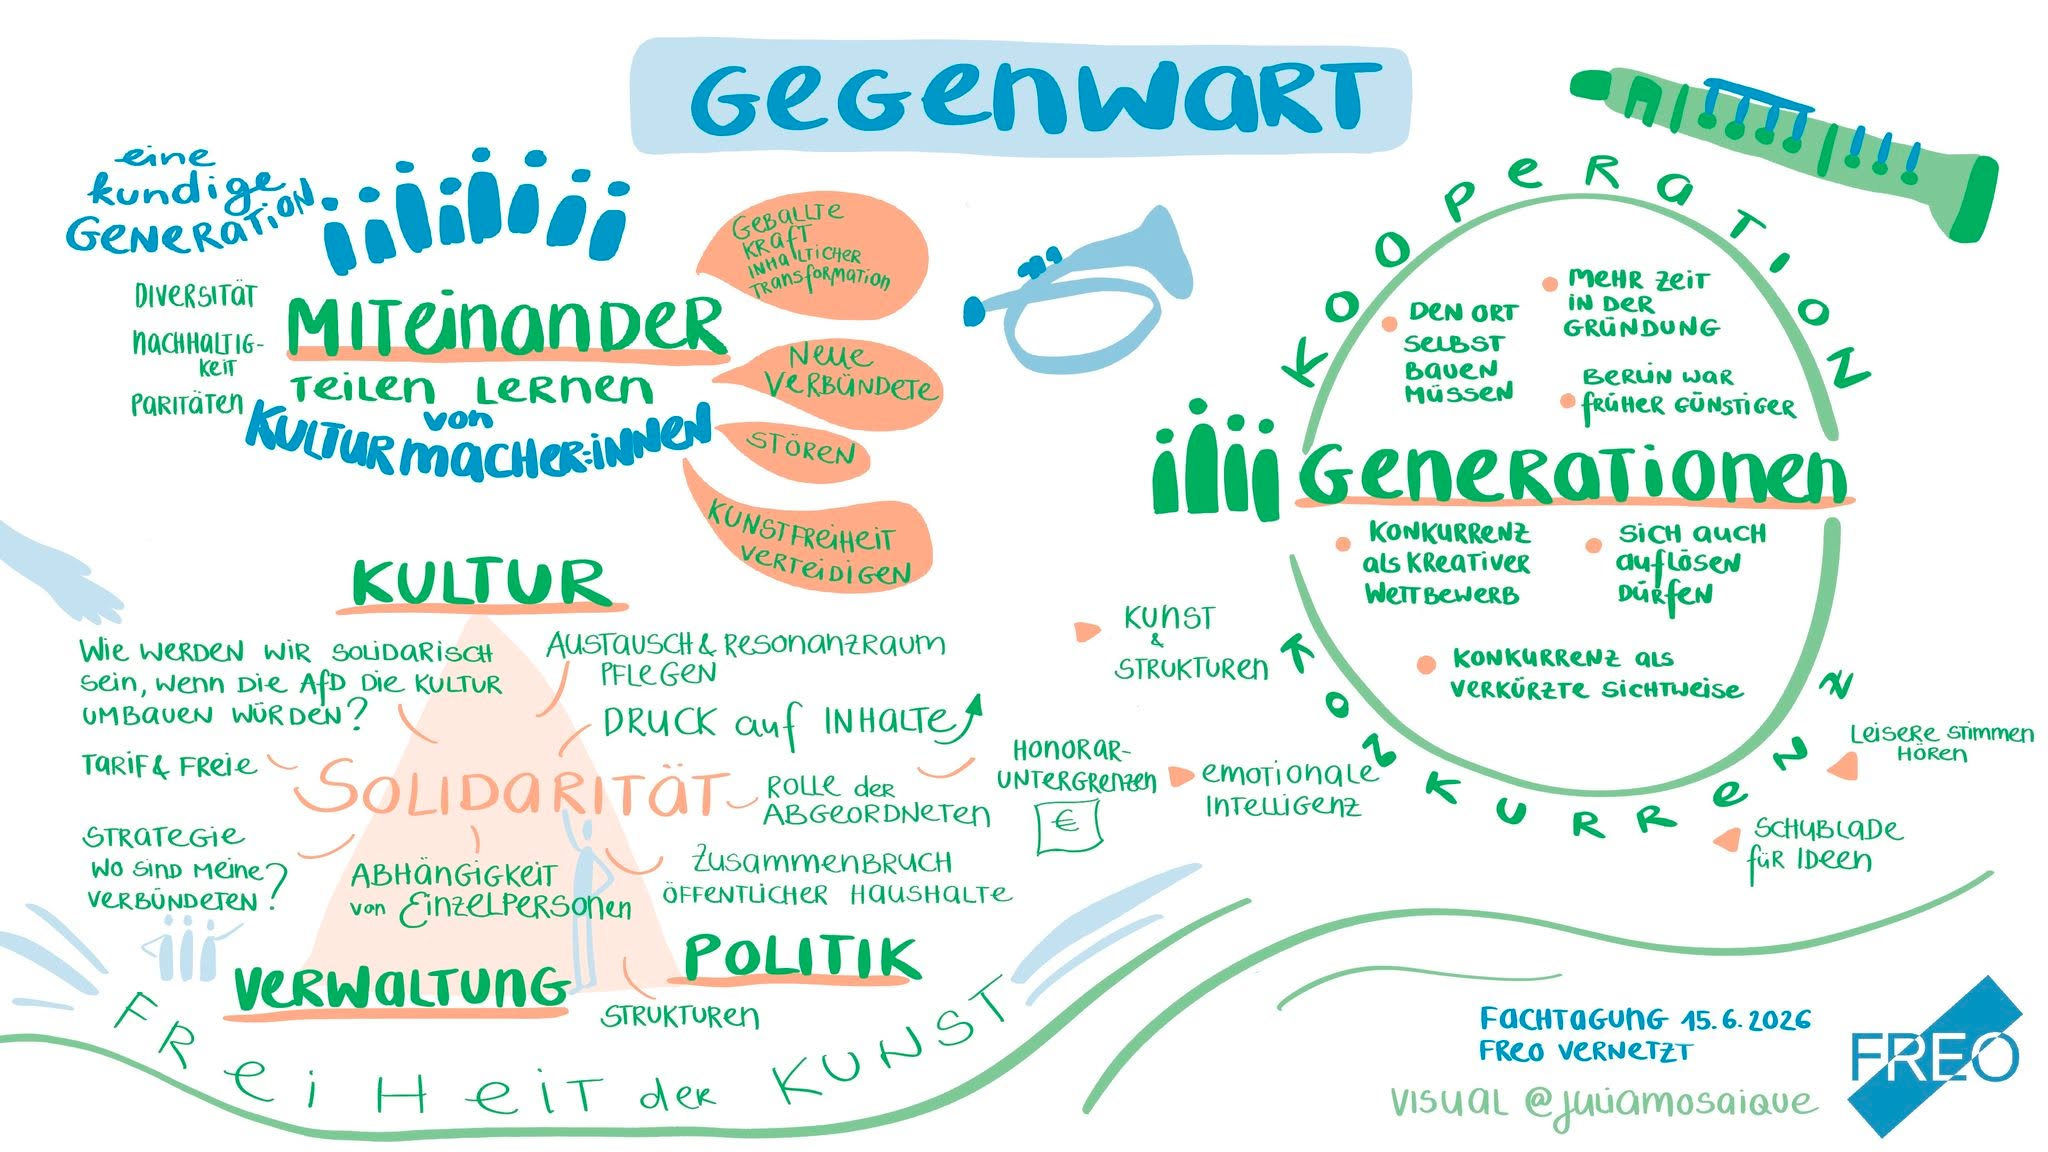 GEGENWART
eine
kundige
GENERATION
DIVERSITÄT
NACHHALTIG-
KEIT
PARITÄTEN
MITEINANDER
TEILEN LERNEN
von
KULTURMACHER:INNEN
GEBALLTE
KRAFT
INHALTICHER
TRANSFORMATION
NEUE
VERBÜNDETE
STÖREN
KUNSTFREIHEIT
VERTEIDIGEN
KOOPERATION
DEN ORT
SELBST
BAUEN
MÜSSEN
MEHR ZEIT
IN DER
GRÜNDUNG
BERLIN WAR
FRÜHER GÜNSTIGER
GENERATIONEN
KONKURRENZ
ALS KREATIVER
WETTBEWERB
SICH AUCH
AUFLÖSEN
DÜRFEN
KONKURRENZ ALS
VERKÜRZTE SICHTWEISE
KONKURRENZ
KUNST
&
STRUKTUREN
LEISERE STIMMEN
HÖREN
SCHUBLADE
FÜR IDEEN
EMOTIONALE
INTELLIGENZ
HONORAR-
UNTERGRENZEN
€
KULTUR
WIE WERDEN WIR SOLIDARISCH
SEIN, WENN DIE AfD DIE KULTUR
UMBAUEN WÜRDEN?
AUSTAUSCH & RESONANZRAUM
PFLEGEN
DRUCK auf INHALTE
TARIF & FREIE
SOLIDARITÄT
ROLLE der
ABGEORDNETEN
STRATEGIE
WO SIND MEINE
VERBÜNDETEN?
ABHÄNGIGKEIT
von EINZELPERSONEN
ZUSAMMENBRUCH
ÖFFENTLICHER HAUSHALTE
VERWALTUNG
POLITIK
STRUKTUREN
FREIHEIT der KUNST
FACHTAGUNG 15.6.2026
FREO VERNETZT
VISUAL @juliamosaique
FREO